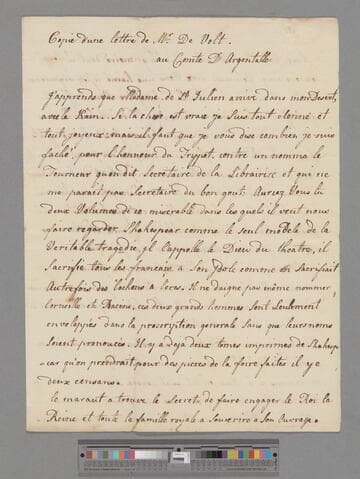 Copie d'une lettre de Mr. De Volt.
au Comte D'Argentalle
J'apprends que Madame de St Julien arrive dans mon Desert,
avec le Kain. Si la chose est vraie je suis tout etonné et
tout joyeux mais il faut que je vous dise combien je suis
faché, pour l'honneur du Tripot, contre un nommé le
Tourneur qu'on dit Secretaire de la Librairie et qui ne
me parait pas Secretaire du bon gout. Auriez Vous lu
deux Volumes de ce miserable dans les quels il veut nous
faire regarder Shakespear comme le Seul modele de la
Veritable tragedie, il l'appelle le Dieu du theatre, il
Sacrifie tous les francais a Son Idole comme on Sacrifiait
Autrefois des Cochons a Ceres. Il ne daigne pas même nommer
Corneille et Racine, ces deux grands hommes Sont Seulement
enveloppés dans la proscription generale Sans que leurs noms
Soient prononcés. Il y a deja deux tomes imprimés de Shakesp
-ear qu'on prendrait pour des pieces de la foire faites il y a
deux cens ans.
le maraut a trouvé le Secret de faire engager le Roi la
Reine et toute la famille royale a Souscrire a Son Ouvrage.